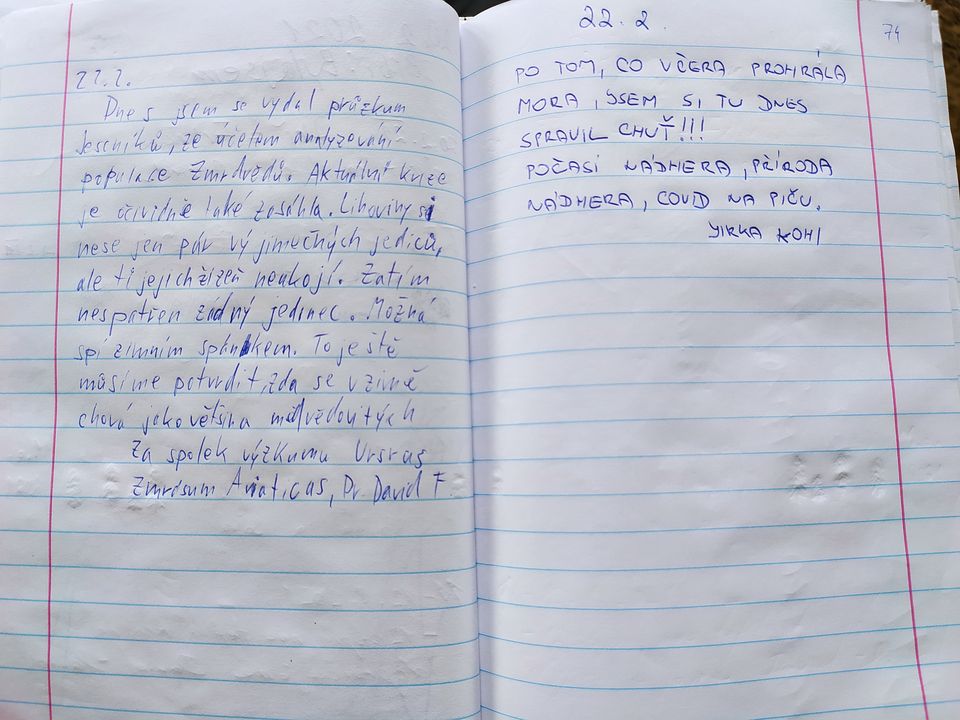 22.2.
Dnes jsem se vydal průzkum
Jeseníků, za účelem analyzování
populace Zmrdvědů. Aktuální krize
je očividně také zasáhla. Lihoviny si
nese jen pár vyjímečných jedinců,
ale ti jejich žízeň neukojí. Zatím
nespatřen žádný jedinec. Možná
spí zimním spánkem. To ještě
musíme potvrdit, zda se v zimě
chová jako většina medvědovitých
Za spolek výzkumu Ursras
Zmrdsum Aviaticas, Dr. David F.
22.2.
74
PO TOM, CO VČERA PROHRÁLA
MORA, JSEM SI TU DNES
SPRAVIL CHUŤ!!!
POČASÍ NÁDHERA, PŘÍRODA
NÁDHERA, COVID NA PIČU.
JIRKA KOHI